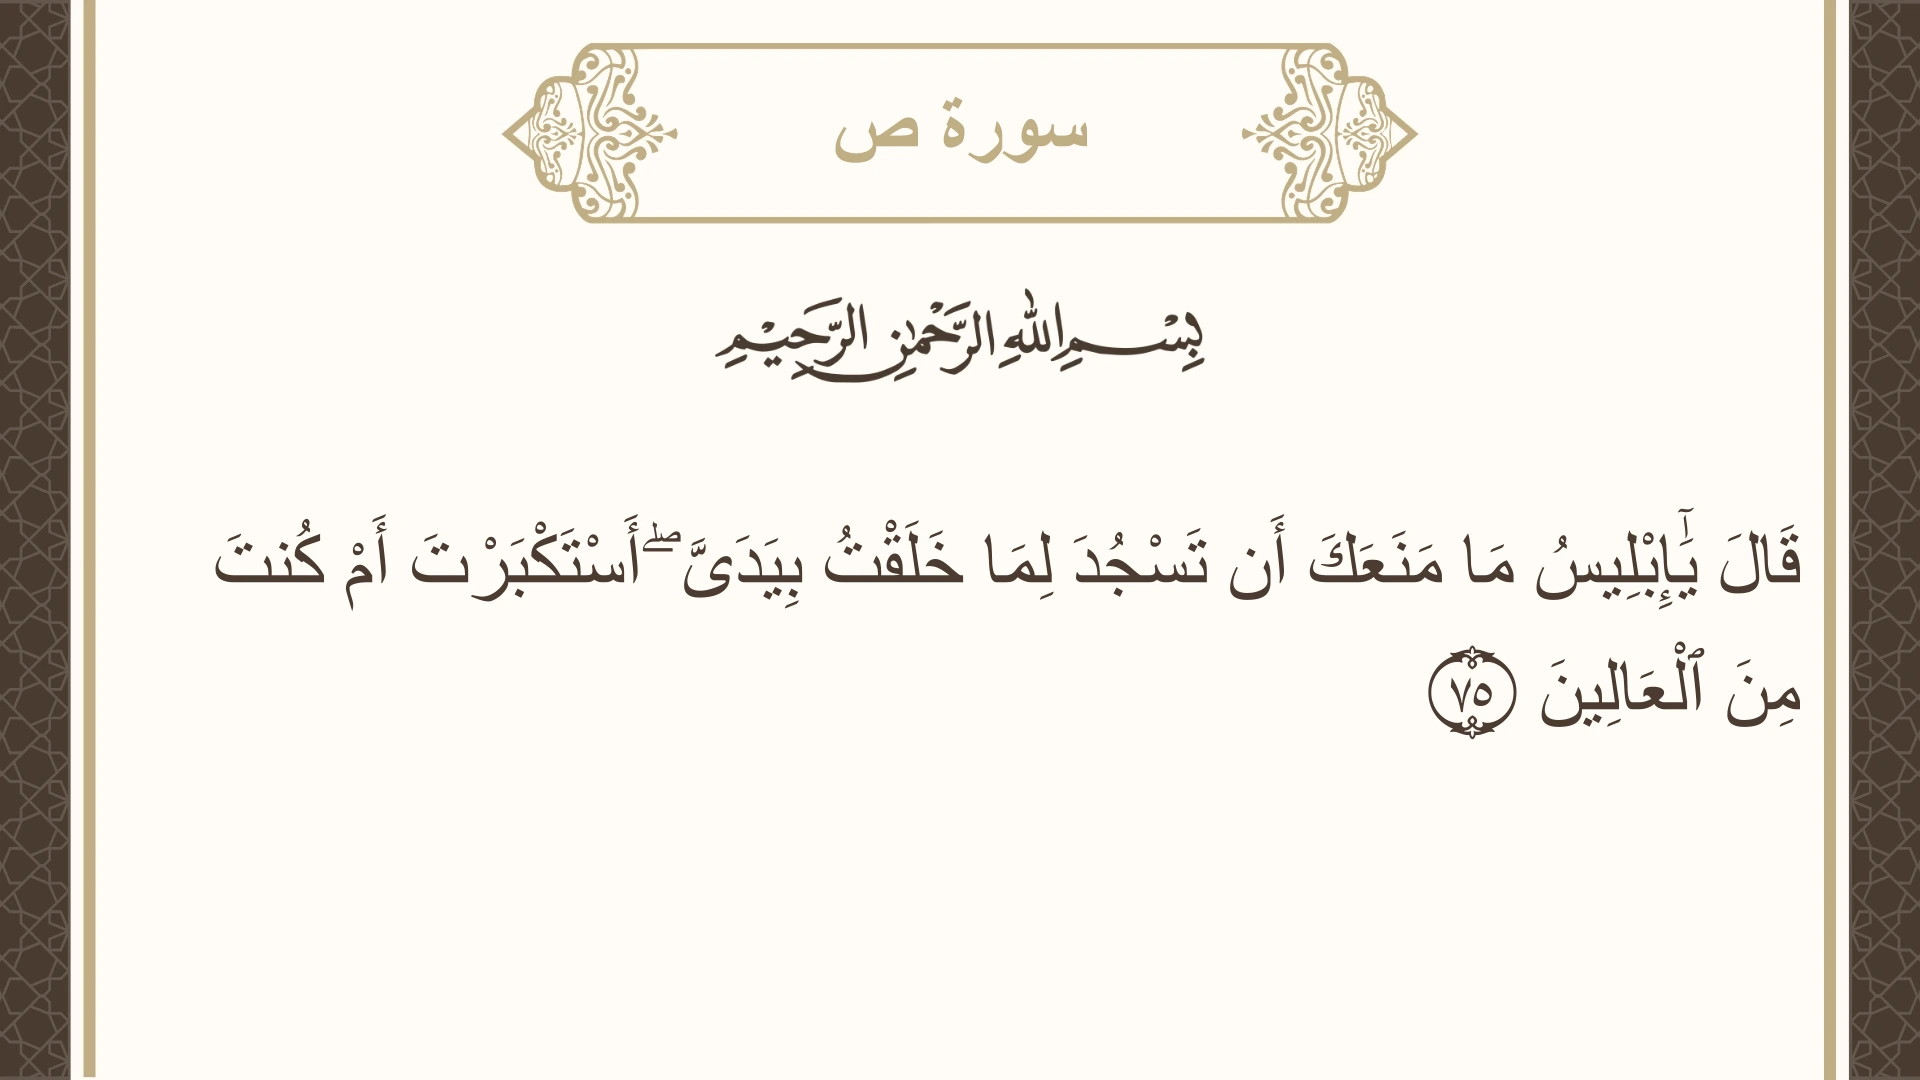 سورة ص
بِسْمِ اللهِ الرَّحْمٰنِ الرَّحِيْمِ
قَالَ يَٰٓإِبْلِيسُ مَا مَنَعَكَ أَن تَسْجُدَ لِمَا خَلَقْتُ بِيَدَىَّ ۖ أَسْتَكْبَرْتَ أَمْ كُنتَ
مِنَ ٱلْعَالِينَ ٧٥